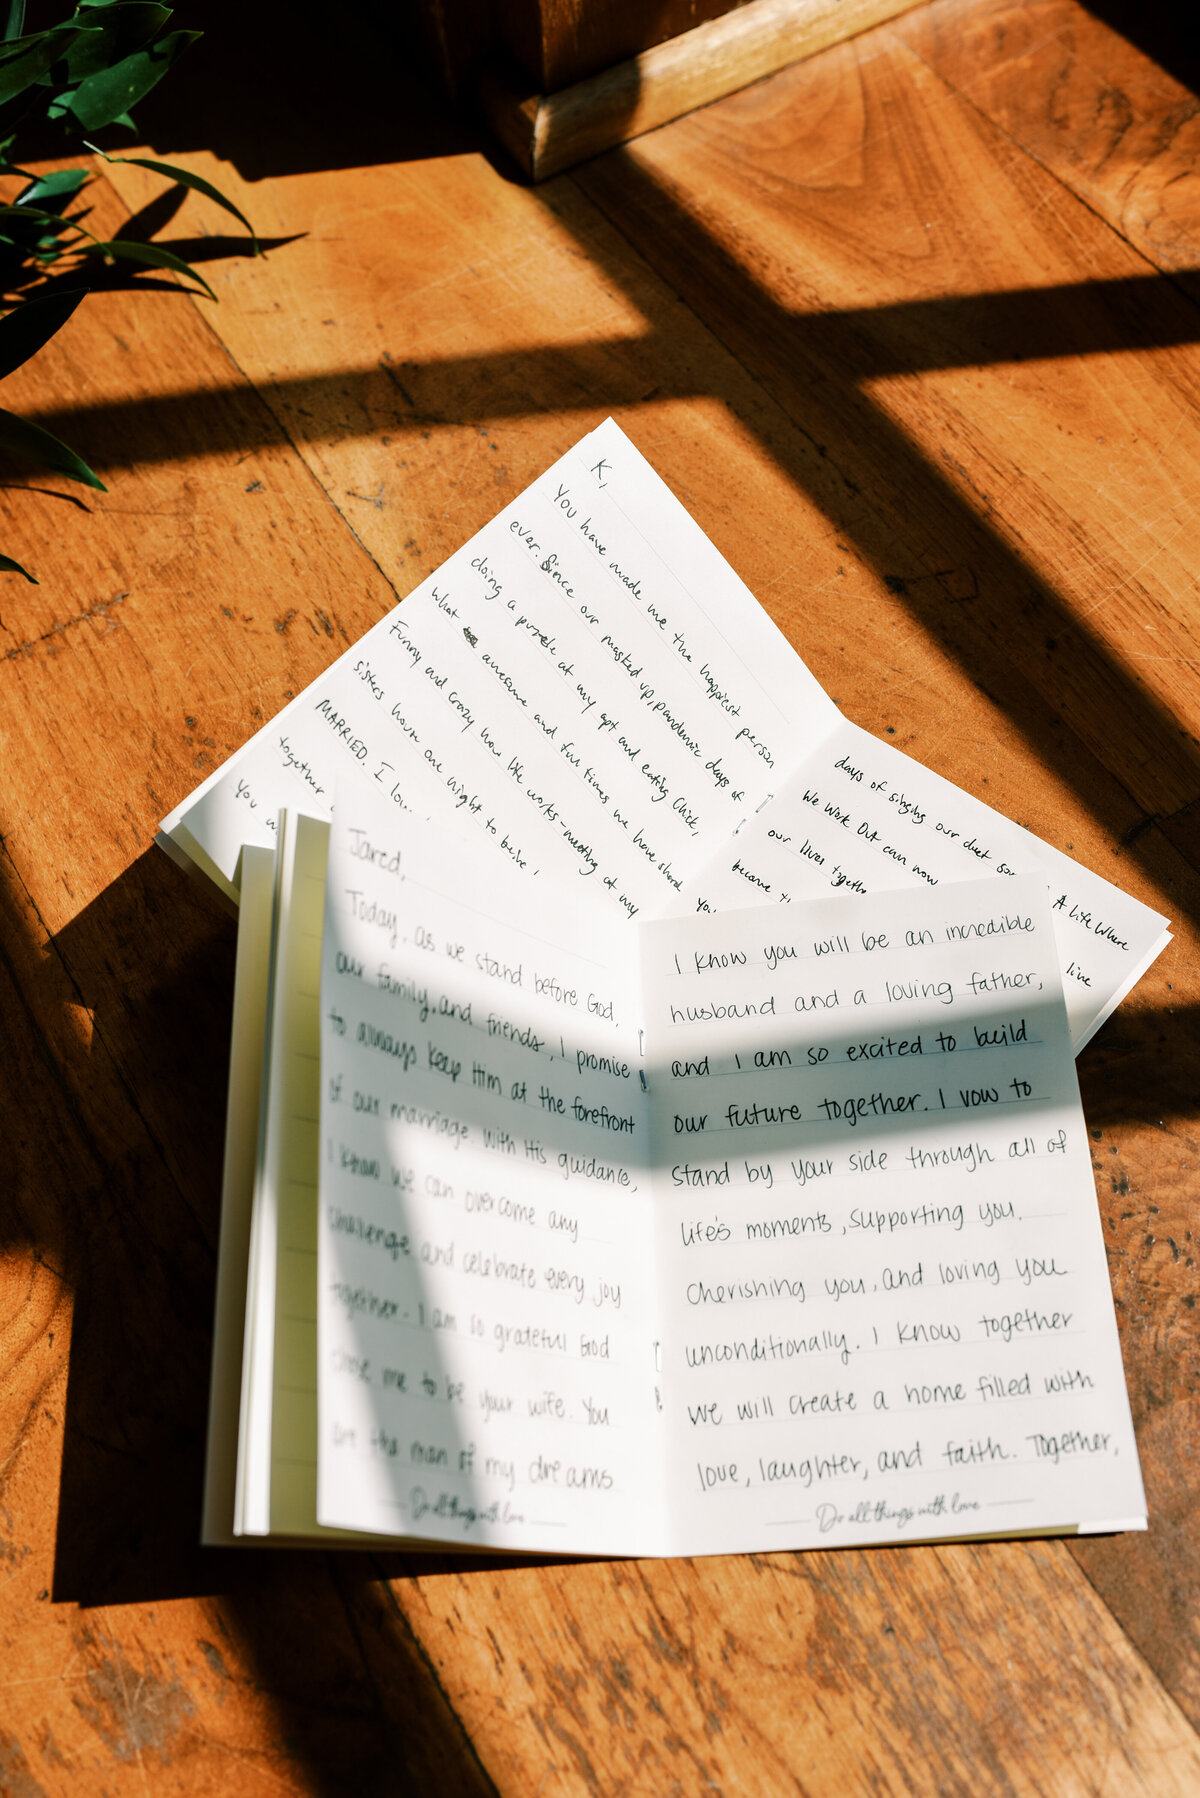 K,
You have made me the happiest person
ever. Since our masked up, pandemic days of
doing a puzzle at my apt and eating Chick,
what awesome and fun times we have shared
Funny and crazy how life works-meeting at my
sisters house one night to being
MARRIED. I
together
You
days of singing our duet
We Work Out can now
our lives
become
You
A life Where
live
Jared,
Today, as we stand before God,
our family, and friends, I promise
to always keep Him at the forefront
of our marriage. With His guidance,
I know we can overcome any
challenge and celebrate every joy
together. I am so grateful God
chose me to be your wife. You
are the man of my dreams
Do all things with love
I know you will be an incredible
husband and a loving father,
and I am so excited to build
our future together. I vow to
stand by your side through all of
life's moments, supporting you.
Cherishing you, and loving you
unconditionally. I know together
we will create a home filled with
love, laughter, and faith. Together,
Do all things with love